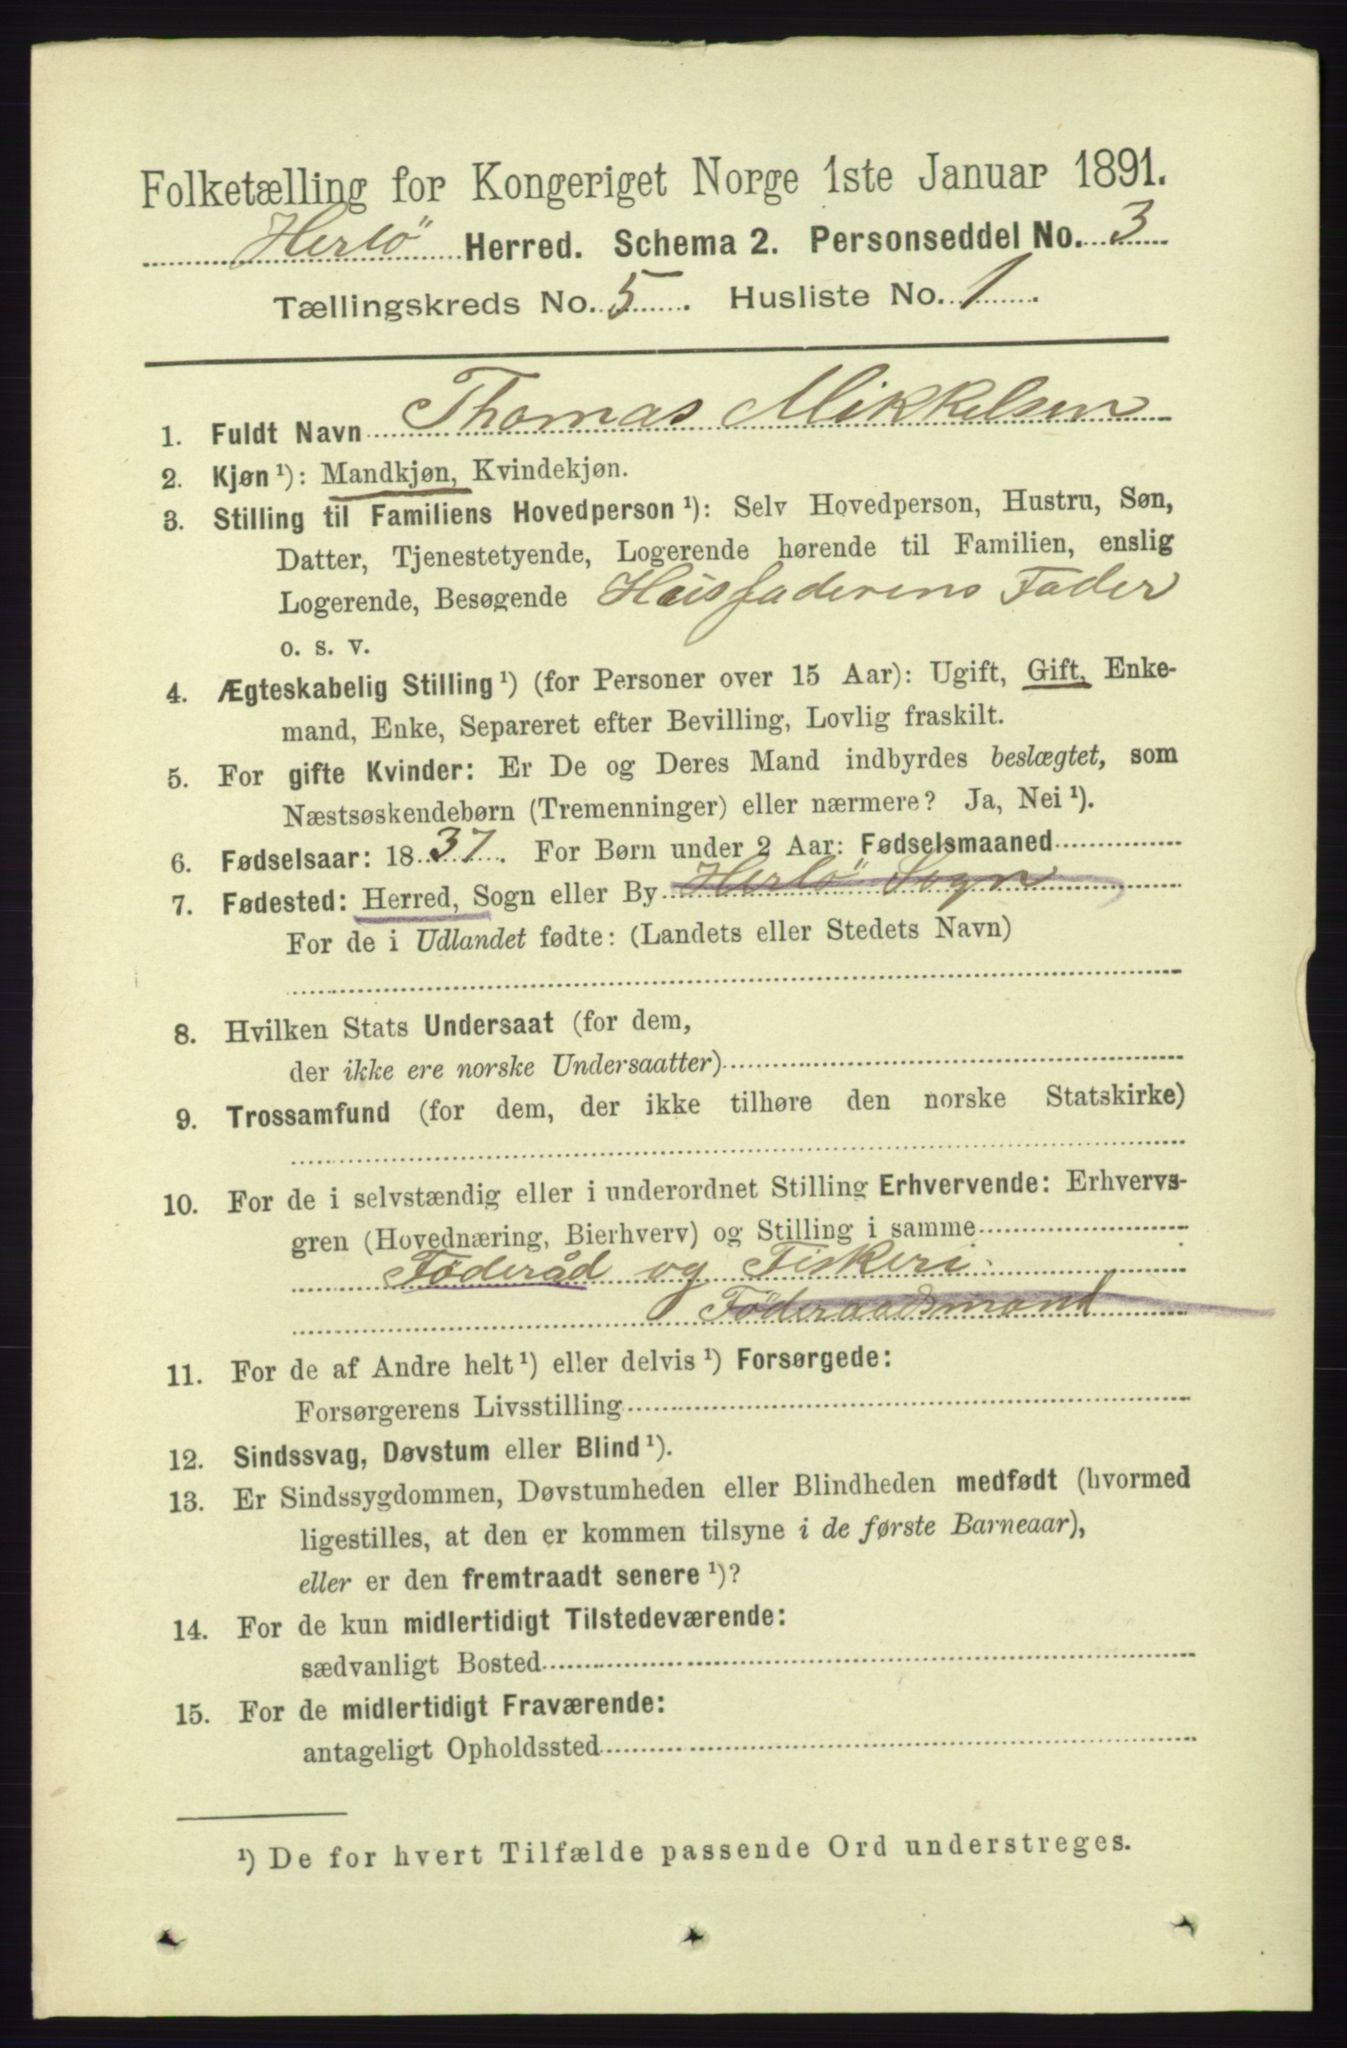 Folketælling for Kongeriget Norge 1ste Januar 1891.
Herlö Herred. Schema 2. Personseddel No. 3
Tællingskreds No. 5. Husliste No. 1.
1. Fuldt Navn Thomas Mikkelsen
2. Kjøn ¹): Mandkjøn, Kvindekjøn.
3. Stilling til Familiens Hovedperson ¹): Selv Hovedperson, Hustru, Søn,
Datter, Tjenestetyende, Logerende hørende til Familien, enslig
Logerende, Besøgende Husfaderens Fader
o. s. v.
4. Ægteskabelig Stilling ¹) (for Personer over 15 Aar): Ugift, Gift, Enke-
mand, Enke, Separeret efter Bevilling, Lovlig fraskilt.
5. For gifte Kvinder: Er De og Deres Mand indbyrdes beslægtet, som
Næstsøskendebørn (Tremenninger) eller nærmere? Ja, Nei ¹).
6. Fødselsaar: 1837. For Børn under 2 Aar: Fødselsmaaned
7. Fødested: Herred, Sogn eller By Herlö Sogn
For de i Udlandet fødte: (Landets eller Stedets Navn)
8. Hvilken Stats Undersaat (for dem,
der ikke ere norske Undersaatter)
9. Trossamfund (for dem, der ikke tilhøre den norske Statskirke)
10. For de i selvstændig eller i underordnet Stilling Erhvervende: Erhvervs-
gren (Hovednæring, Bierhverv) og Stilling i samme
Föderåd og Fiskeri.
Föderaadsmand
11. For de af Andre helt ¹) eller delvis ¹) Forsørgede:
Forsørgerens Livsstilling
12. Sindssvag, Døvstum eller Blind ¹).
13. Er Sindssygdommen, Døvstumheden eller Blindheden medfødt (hvormed
ligestilles, at den er kommen tilsyne i de første Barneaar),
eller er den fremtraadt senere ¹)?
14. For de kun midlertidigt Tilstedeværende:
sædvanligt Bosted
15. For de midlertidigt Fraværende:
antageligt Opholdssted
¹) De for hvert Tilfælde passende Ord understreges.